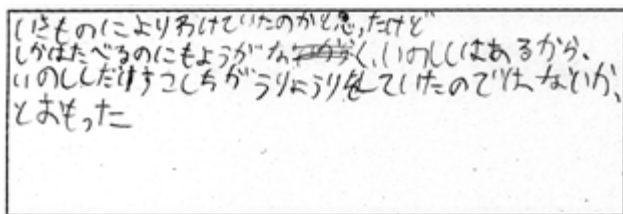 いきものによりわけていたのかと思ったけど
しかはたべるのにもようがなく、いのししはあるから、
いのししだけすこしちがうりょうりをしていたのではないか、
とおもった